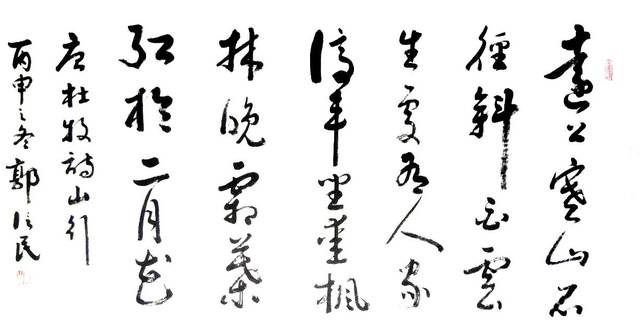 遠上寒山石
徑斜白雲
生處有人家
停車坐愛楓
林晚霜葉
紅於二月花
唐杜牧詩山行
丙申之冬郭信民